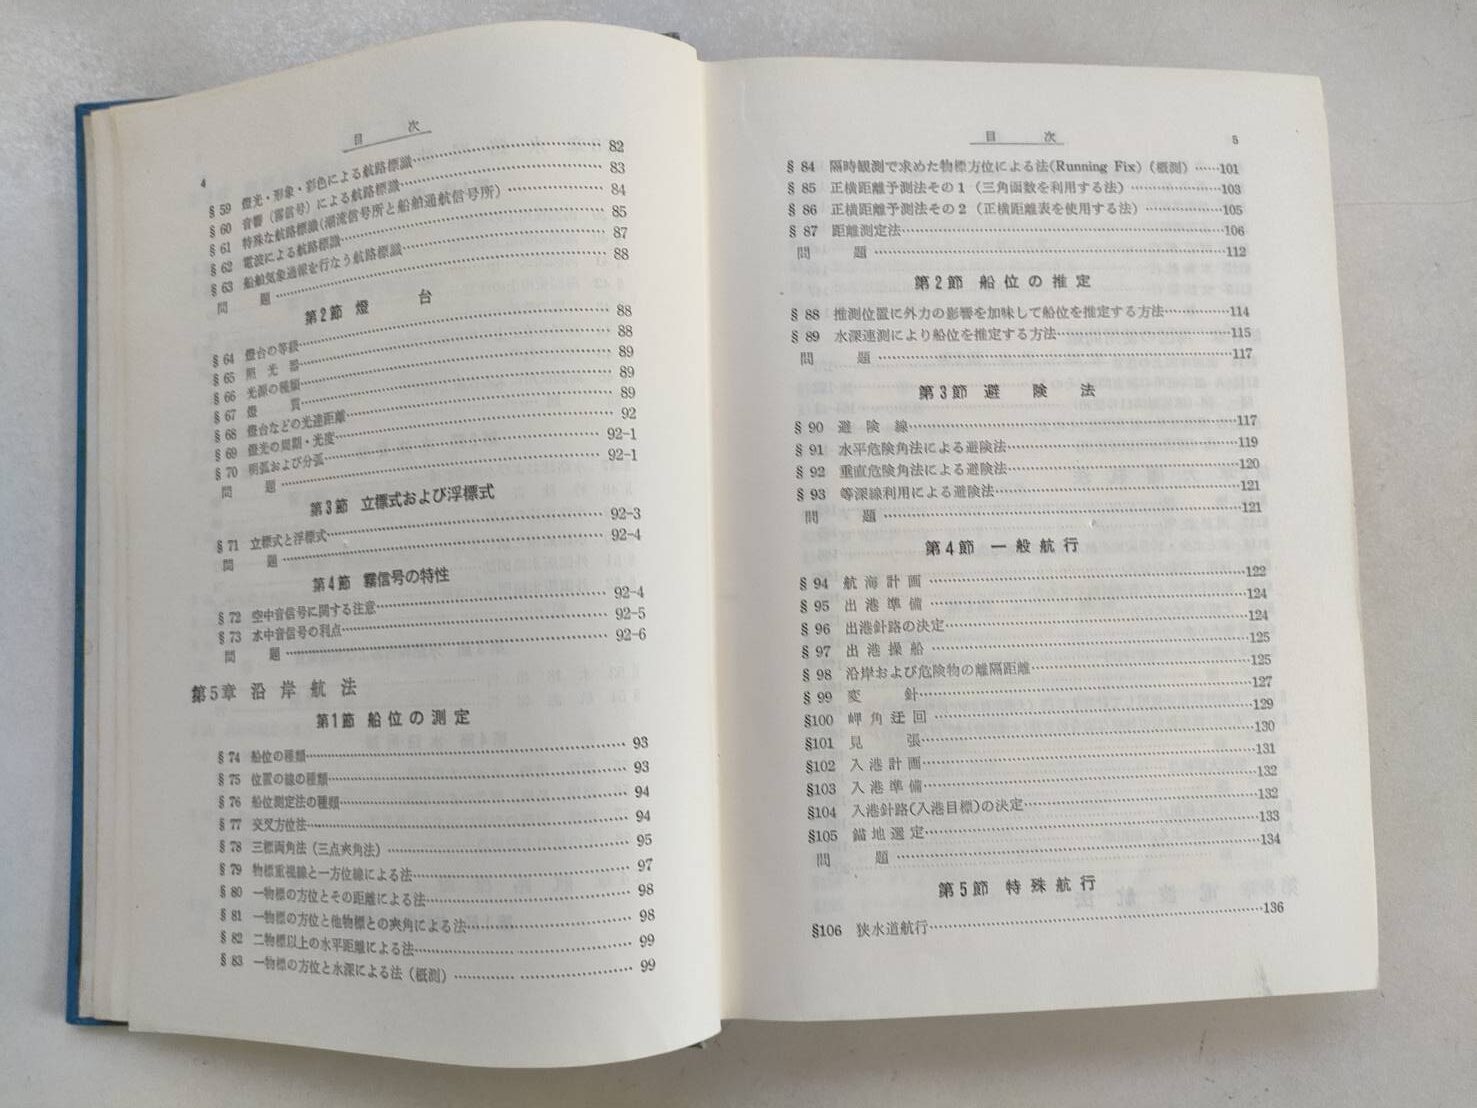 目　次
4
§59 燈光・形象・彩色による航路標識 82
§60 音響（霧信号）による航路標識 83
§61 特殊な航路標識(潮流信号所と船舶通航信号所) 84
§62 電波による航路標識 85
§63 船舶気象通報を行なう航路標識 87
問　題 88
第2節 燈　台
§64 燈台の等級 88
§65 照光器 88
§66 光源の種類 89
§67 燈質 89
§68 燈台などの光達距離 89
§69 燈光の周期・光度 92
§70 明弧および分弧 92-1
問　題 92-1
第3節 立標式および浮標式
§71 立標式と浮標式 92-3
問　題 92-4
第4節 霧信号の特性
§72 空中音信号に関する注意 92-4
§73 水中音信号の利点 92-5
問　題 92-6
第5章 沿岸航法
第1節 船位の測定
§74 船位の種類 93
§75 位置の線の種類 93
§76 船位測定法の種類 94
§77 交叉方位法 94
§78 三標両角法（三点夾角法） 95
§79 物標重視線と一方位線による法 97
§80 一物標の方位とその距離による法 98
§81 一物標の方位と他物標との夾角による法 98
§82 二物標以上の水平距離による法 99
§83 一物標の方位と水深による法（概測） 99
目　次
5
§84 隔時観測で求めた物標方位による法(Running Fix)（概測） 101
§85 正横距離予測法その1（三角函数を利用する法） 103
§86 正横距離予測法その2（正横距離表を使用する法） 105
§87 距離測定法 106
問　題 112
第2節 船位の推定
§88 推測位置に外力の影響を加味して船位を推定する方法 114
§89 水深連測により船位を推定する方法 115
問　題 117
第3節 避険法
§90 避険線 117
§91 水平危険角法による避険法 119
§92 垂直危険角法による避険法 120
§93 等深線利用による避険法 121
問　題 121
第4節 一般航行
§94 航海計画 122
§95 出港準備 124
§96 出港針路の決定 124
§97 出港操船 125
§98 沿岸および危険物の離隔距離 125
§99 変針 127
§100 岬角迂回 129
§101 見張 130
§102 入港計画 131
§103 入港準備 132
§104 入港針路(入港目標)の決定 132
§105 錨地選定 133
問　題 134
第5節 特殊航行
§106 狭水道航行 136